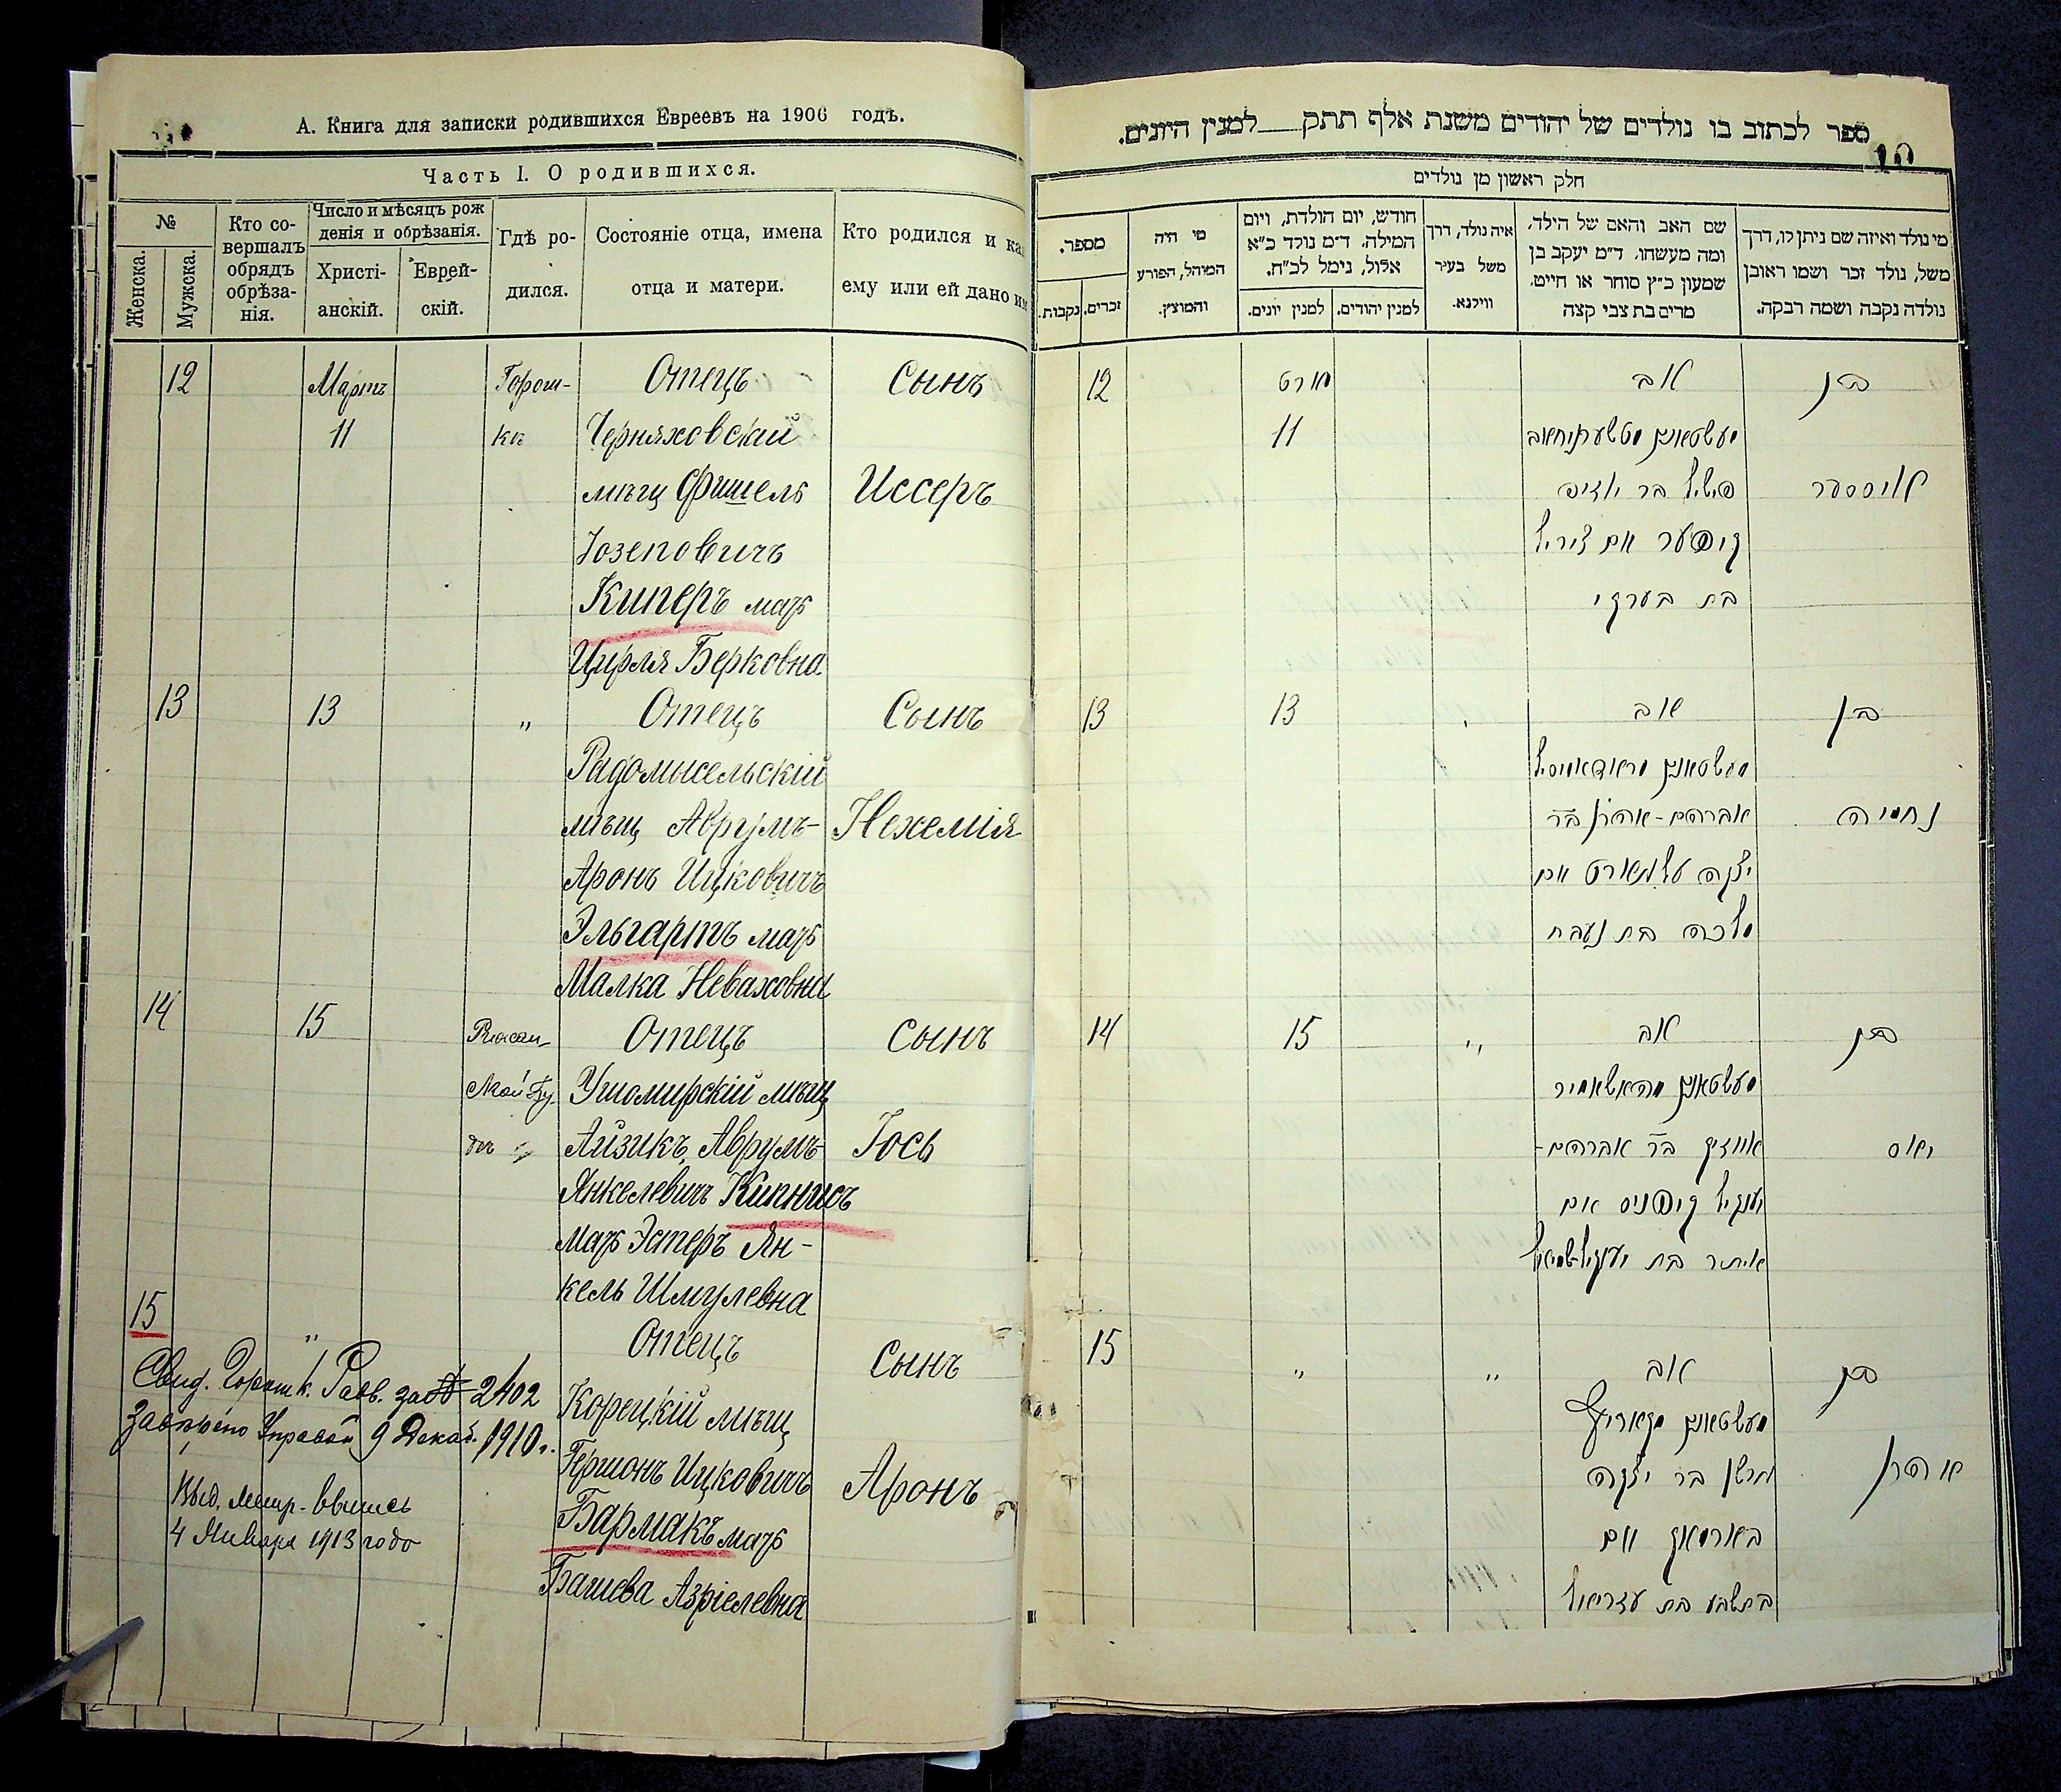 А. Книга для записки родившихся Евреевъ на 1906 годъ.
Часть I. О родившихся.
№
Женска.
Мужска.
Кто со-
вершалъ
обрядъ
обрѣза-
нія.
Число и мѣсяцъ рож
денія и обрѣзанія.
Христі-
анскій.
Еврей-
скій.
Гдѣ ро-
дился.
Состояніе отца, имена
отца и матери.
Кто родился и ка
ему или ей дано им
12
Мартъ
11
Горош-
ки
Отецъ
Черняховскій
мѣщ Фишель
Іозеповичъ
Киперъ мать
Цирля Берковна
Сынъ
Иссеръ
13
13
"
Отецъ
Радомысельскій
мѣщ Аврумъ-
Аронъ Ицковичъ
Эльгартъ мать
Малка Неваховна
Сынъ
Нехемія
14
15
Отецъ
Ушомирскій мѣщ
Айзикъ Аврумъ-
Янкелевичъ Кипнисъ
мать Эстеръ Ян-
кель Шмулевна
Сынъ
Іось
15
"
Отецъ
Корецкій мѣщ
Гершонъ Ицковичъ
Бармакъ мать
Башева Азріелевна
Сынъ
Аронъ
Свид. Горошк. Равв. за № 2402
Управой 9 Декаб. 1910 г.
4 Января 1913 года
ספר לכתוב בו נולדים של יהודים משנת אלף תתק למנין היונים.
10
חלק ראשון מן נולדים
מספר.
זכרים.
נקבות.
מי היה
המוהל, הפורע
והמוצץ.
חודש, יום הולדת, ויום
המילה. ד״מ נולד כ״א
אלול, נימל לכ״ח.
למנין יונים.
למנין יהודים.
איה נולד, דרך
משל בעיר
ווילנא.
שם האב והאם של הילד,
ומה מעשהו. ד״מ יעקב בן
שמעון כ״ץ סוחר או חייט.
מרים בת צבי קצה
מי נולד ואיזה שם ניתן לו, דרך
משל, נולד זכר ושמו ראובן
נולדה נקבה ושמה רבקה.
12
מארט
11
אב
פישל בר יוזיפ
קיפער אם צירל
בת בערקי
בן
איססער
13
13
אב
אברהם-אהרן בר
יצקה עלגארט אם
מלכה בת נעבח
בן
נחמיה
14
15
"
אב
אייזיק בר אברהם-
יענקל קיפניס אם
אסתר בת יענקל-שמואל
בן
יאס
15
"
"
אב
גרשן בר יצקה
בארמאק אם
בתשבע בת עזריאל
בן
אהרן